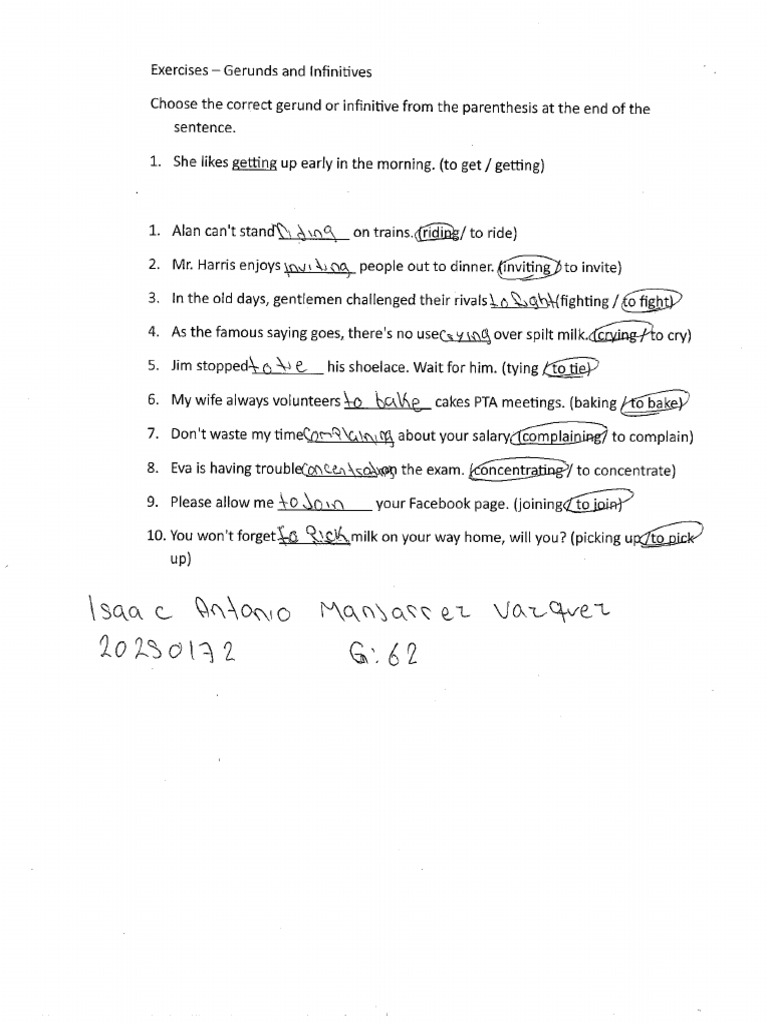 Exercises – Gerunds and Infinitives
Choose the correct gerund or infinitive from the parenthesis at the end of the
sentence.
1. She likes getting up early in the morning. (to get / getting)
1. Alan can't stand riding on trains. (riding / to ride)
2. Mr. Harris enjoys inviting people out to dinner. (inviting / to invite)
3. In the old days, gentlemen challenged their rivals to fight (fighting / to fight)
4. As the famous saying goes, there's no use crying over spilt milk. (crying / to cry)
5. Jim stopped to tie his shoelace. Wait for him. (tying / to tie)
6. My wife always volunteers to bake cakes PTA meetings. (baking / to bake)
7. Don't waste my time complaining about your salary. (complaining / to complain)
8. Eva is having trouble the exam. (concentrating / to concentrate)
9. Please allow me to join your Facebook page. (joining / to join)
10. You won't forget to pick milk on your way home, will you? (picking up / to pick
up)
Isaac Antonio Manjarrez Vazquez
20250172 G:62